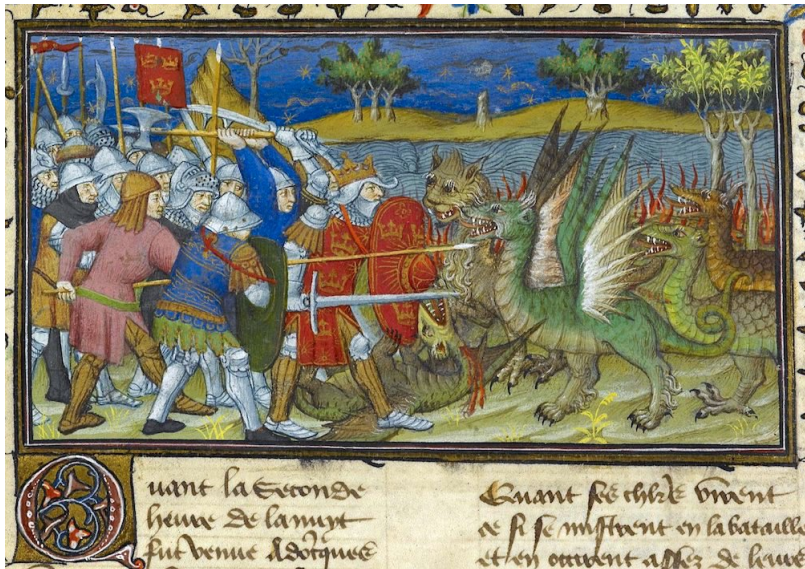 Quant la seconde
heure de la nuyt
fut venue adoncques
Quant ses chlrs virent
ce si se mistrent en la bataille
et en occirent assez de leurs